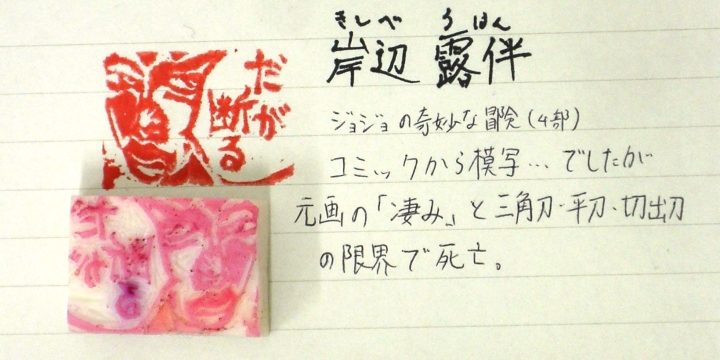 きしべ ろはん
岸辺 露伴
だが
断る
ジョジョの奇妙な冒険(4部)
コミックから模写…でしたが
元画の「凄み」と三角刀・平刀・切出刀
の限界で死亡。